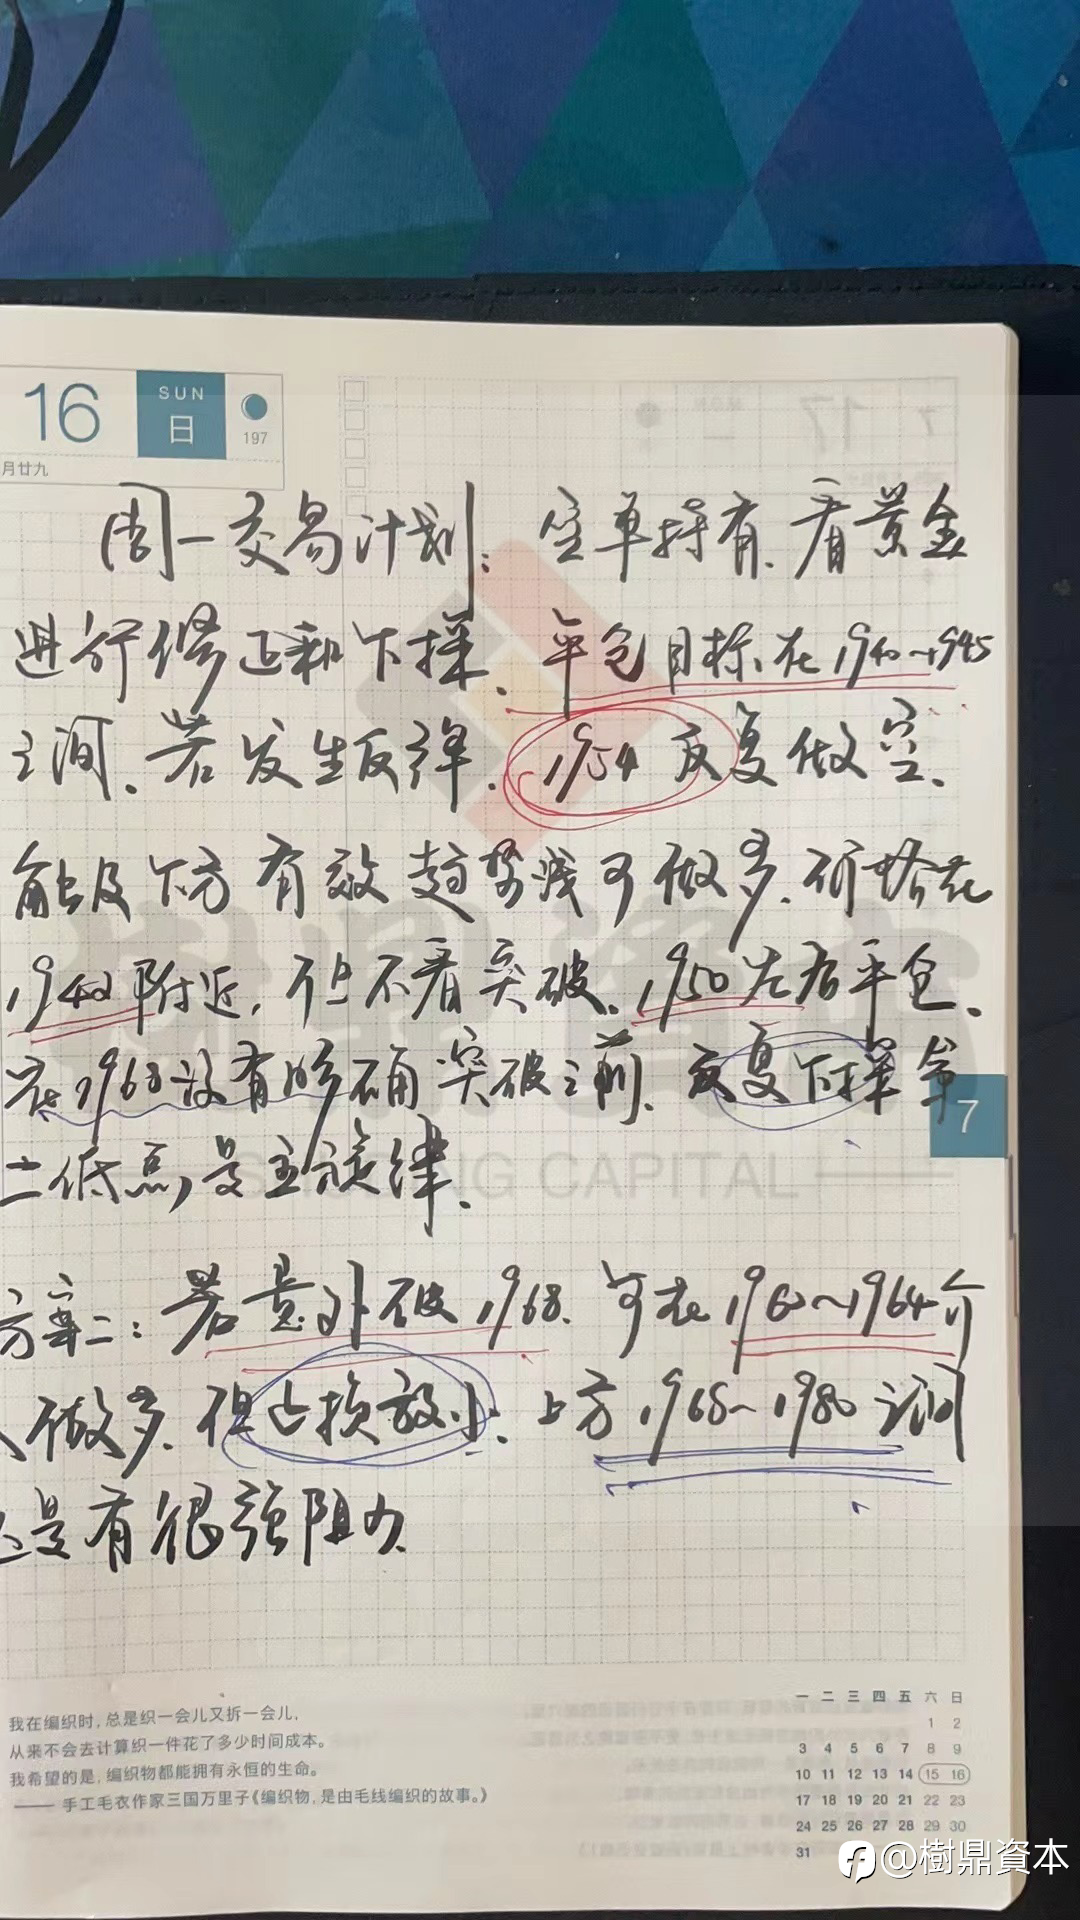 16
SUN
日
197
月廿九
周一交易计划：空单持有、看黄金
进行修正和下探、平仓目标在1940~1945
之间、若发生反弹、1954反复做空、
触及下方有效趋势线可做多、价格在
1942附近，但不看突破、1950左右平仓、
在1963没有明确突破之前、反复下探第
二低点，是主旋律、
方案二：若意外破1968、可在1960~1964介
入做多、但止损放小、上方1968~1980之间
还是有很强阻力、
7
SHUDING CAPITAL
我在编织时，总是织一会儿又拆一会儿，
从来不会去计算织一件花了多少时间成本。
我希望的是，编织物都能拥有永恒的生命。
—— 手工毛衣作家三国万里子《编织物，是由毛线编织的故事。》
一 二 三 四 五 六 日
1 2
3 4 5 6 7 8 9
10 11 12 13 14 15 16
17 18 19 20 21 22 23
24 25 26 27 28 29 30
31
@樹鼎資本